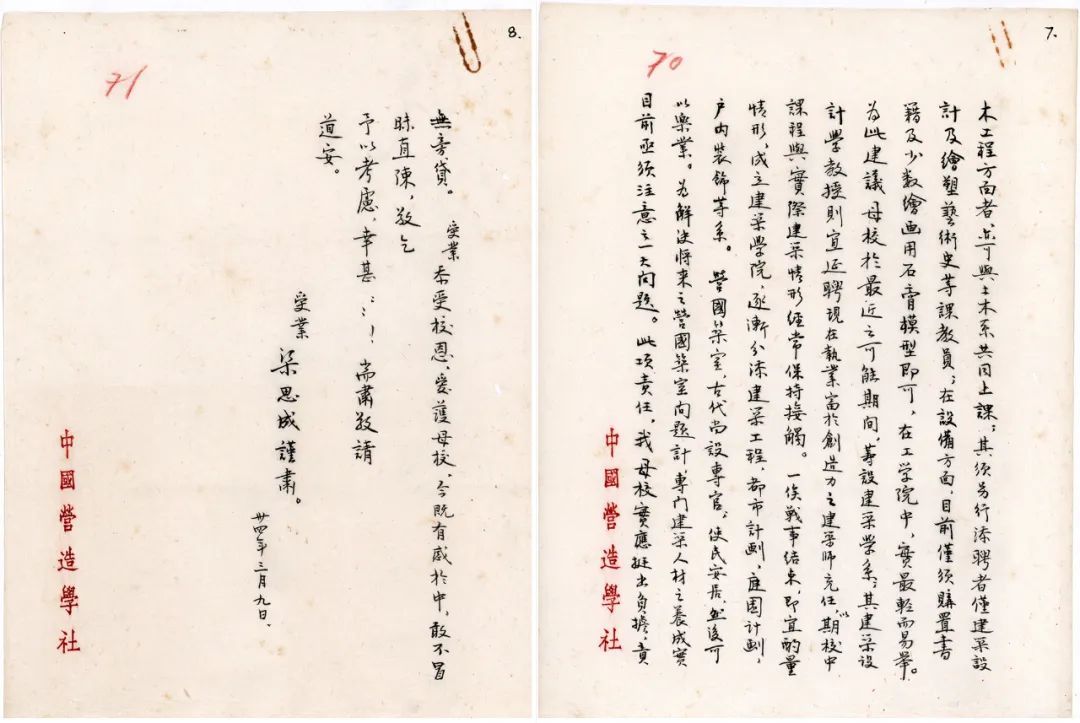 7.
70
木工程方面者亦可與土木系共同上課；其須另行添聘者僅建築設
計及繪塑藝術史等課教員；在設備方面，目前僅須購置書
籍及少数繪画用石膏模型即可，在工学院中，實最輕而易舉。
為此建議母校於最近之可能期间，籌設建築学系；其建築設
計學教授則宜延聘現在執業富於創造力之建築師充任，以期校中
課程與實際建築情形經常保持接觸。一俟戰事結束，即宜酌量
情形，成立建築学院，逐漸分添建築工程，都市計劃，庭園計劃，
户内裝飾等系。營國築室，古代尚設專官，使民安居，然後可
以樂業。為解決將來之營國築室问題計，專门建築人材之養成實
目前亟須注意之一大问題。此項責任，我母校實應挺出負擔，責
中國營造學社
8.
71
無旁貸。受業忝受校恩，愛護母校，今既有感於中，敢不冒
昧直陳，敬乞
予以考慮，幸甚ミミ！耑肅敬請
道安。
受業梁思成謹肅。
卅四年三月九日、
中國營造學社